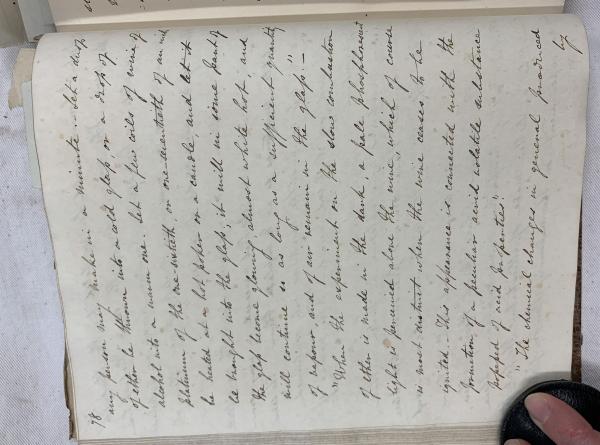 78
any person may make in a minute. Let a drop
of ether be thrown into a cold glass or a drop of
alcohol into a warm one. Let a few coils of wire of
platinum of the one-sixtieth or one-seventieth of an inch
be heated at a hot poker or a candle, and let it
be brought into the glass; it will in some part of
the glass become glowing almost white hot, and
will continue so as long as a sufficient quantity
of vapour, and of air remain in the glass."
"When the experiment on the slow combustion
of ether is made in the dark, a pale phosphorescent
light is perceived above the wire which of course
is most distinct when the wire ceases to be
ignited. This appearance is connected with the
formation of a peculiar acrid volatile substance
possessed of acid properties."
"The chemical changes in general produced
by